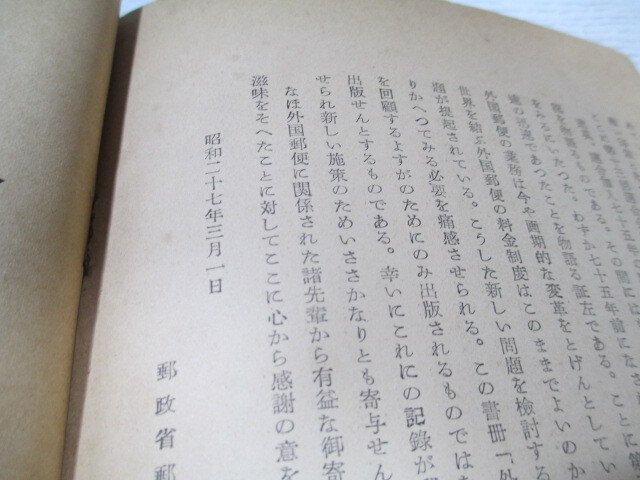 証を物語るものである。その間にはな
をみるにいたつた。わずか七十五年前になさ
達の迅速であつたことを物語る証左である。ことに第
外国郵便の業務は今や画期的な変革をとげんとしてい
世界を結ぶ外国郵便の料金制度はこのままでよいのか
題が提起されている。こうした新しい問題を検討する
りかへつてみる必要を痛感させられる。この書冊「外
を回顧するよすがのためにのみ出版されるものではな
出版せんとするものである。幸いにこれにの記録が
せられ新しい施策のためいささかなりとも寄与せん
なほ外国郵便に関係された諸先輩から有益な御寄
滋味をそへたことに対してここに心から感謝の意を
昭和二十七年三月一日
郵政省郵